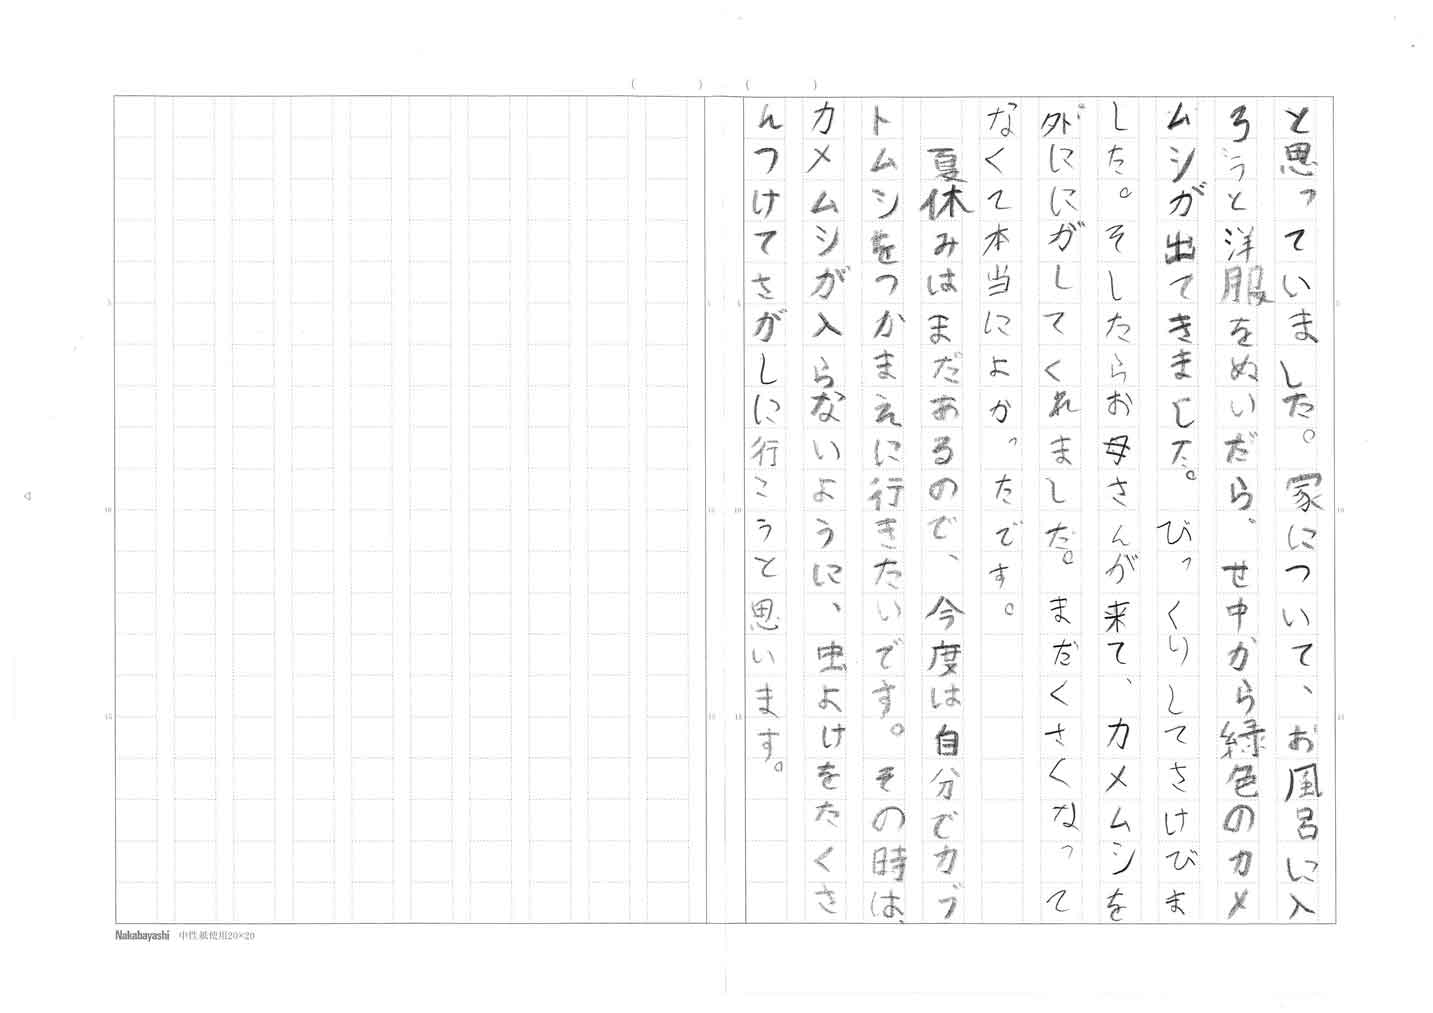 と思っていました。家について、お風呂に入
ろうと洋服をぬいだら、せ中から緑色のカメ
ムシが出てきました。びっくりしてさけびま
した。そしたらお母さんが来て、カメムシを
外ににがしてくれました。まだくさくなって
なくて本当によかったです。
夏休みはまだあるので、今度は自分でカブ
トムシをつかまえに行きたいです。その時は、
カメムシが入らないように、虫よけをたくさ
んつけてさがしに行こうと思います。
Nakabayashi 中性紙使用20×20